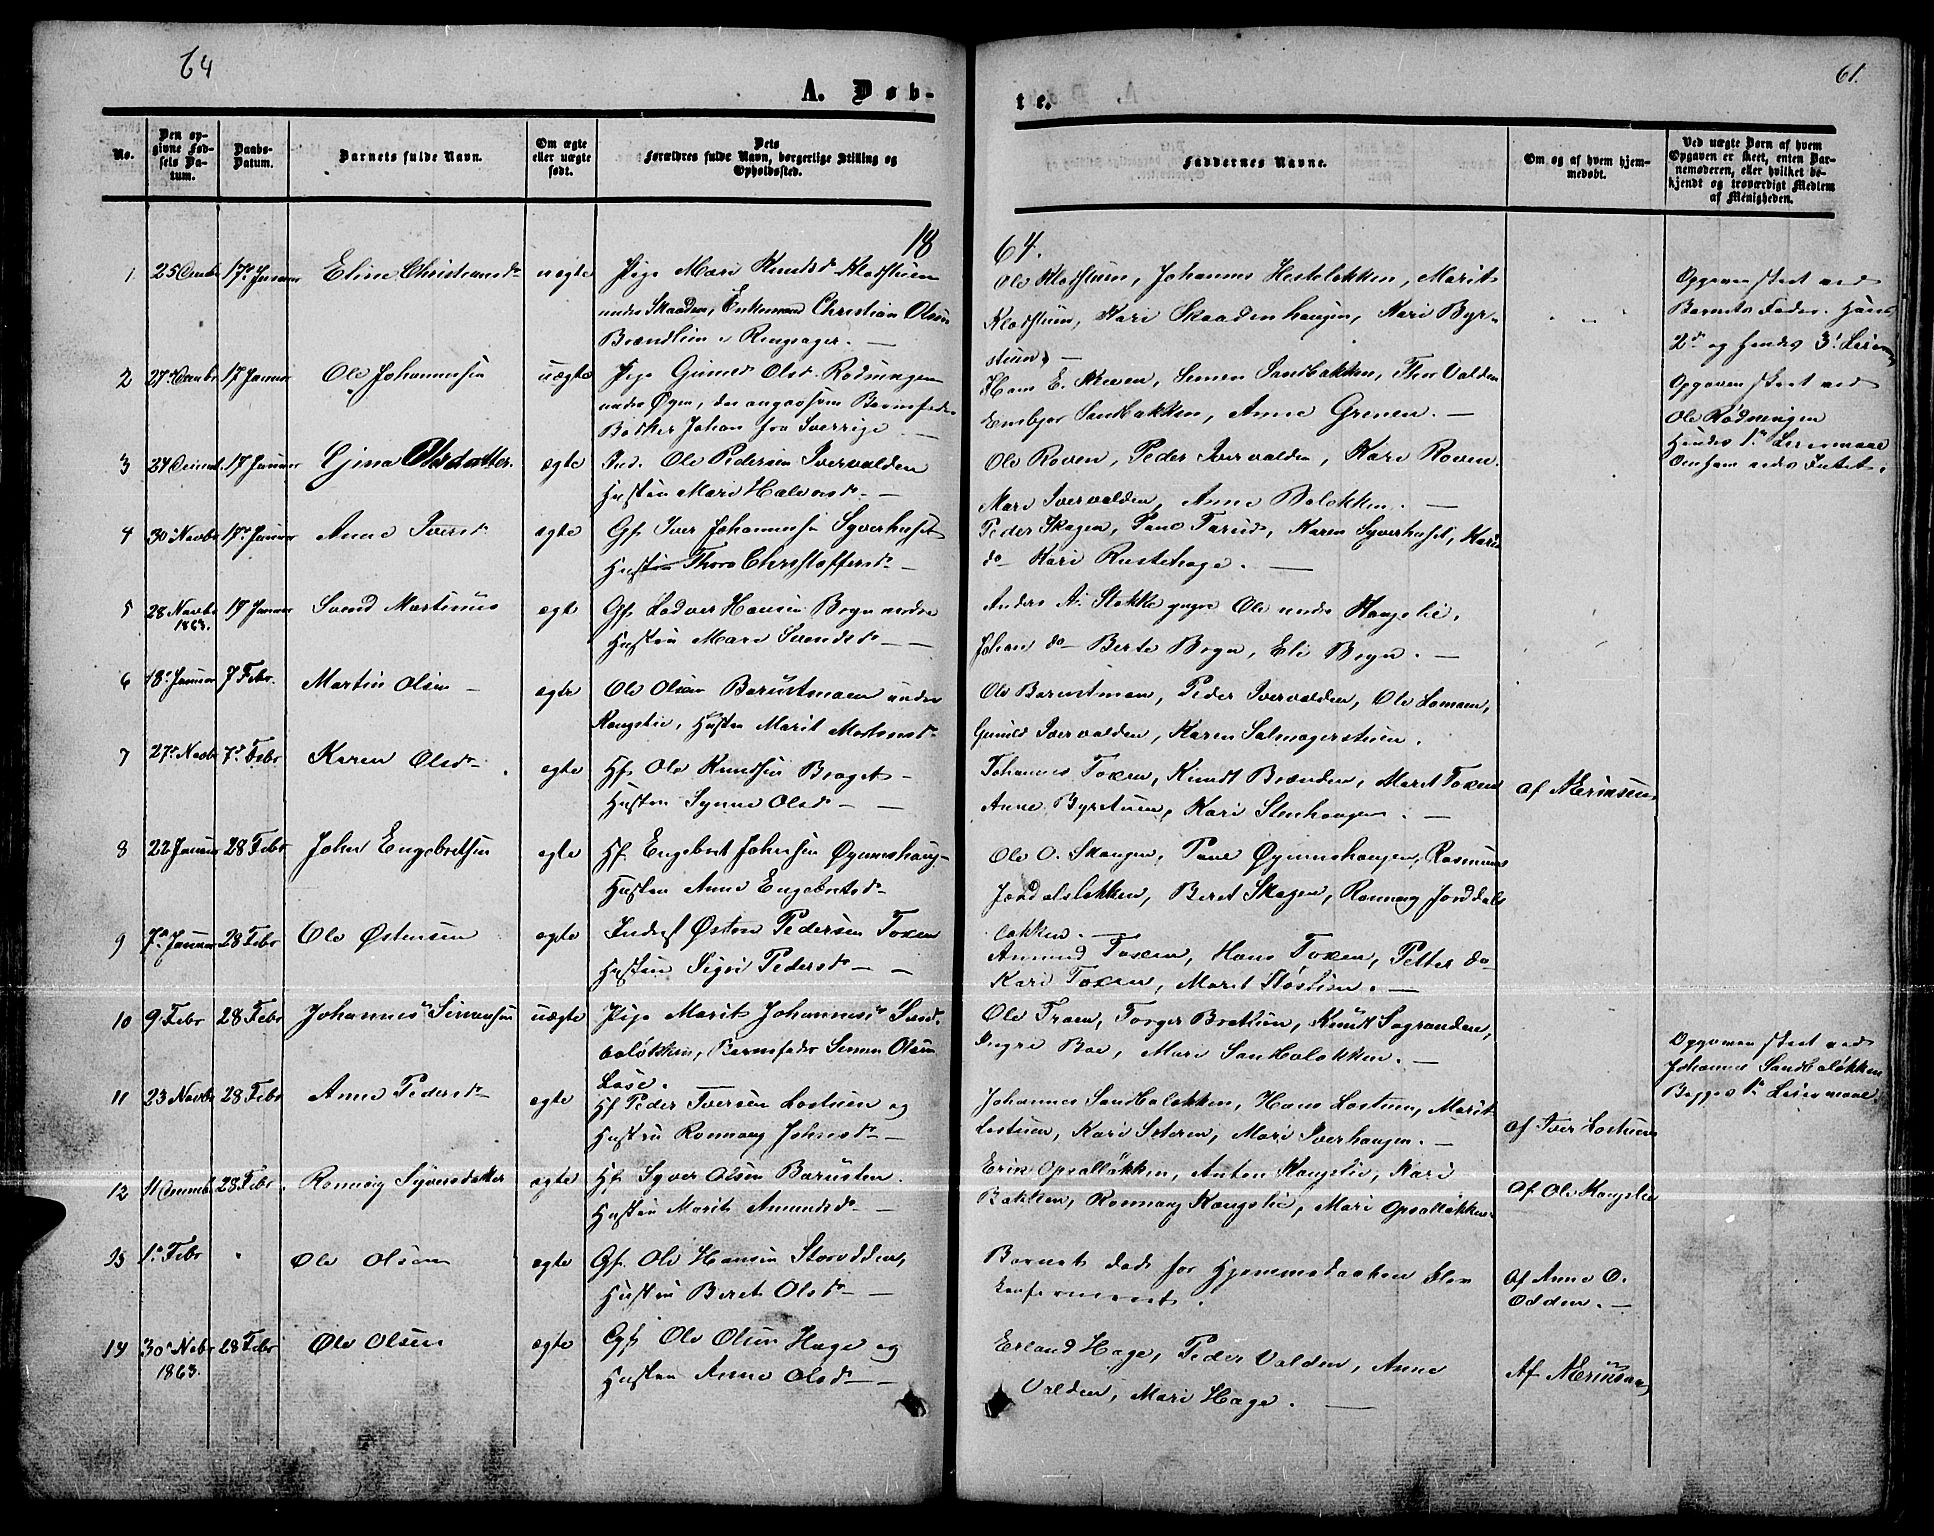 64
61.
A. Døb-
te.
No.
Den op-
givne Fød-
sels Da-
tum.
Daabs-
Datum.
Barnets fulde Navn.
Om ægte
eller uægte
født.
Dets
Forældres fulde Navn, borgerlige Stilling og
Opholdssted.
Faddernes Navne.
Om og af hvem hjem-
medøbt.
Ved uægte Børn af hvem
Opgaven er skeet, enten Bar-
nemoderen, eller hvilket be-
kjendt og troværdigt Medlem
af Menigheden.
18
64.
1 25 17de Januar Eline Christiansd. uægte Pige Mari Knudsd. Klodstuen
under Skaaden, Enkemand Christian Olsen
Brændlien i Ringsager. —
Ole Klodstuen, Johannes Hesteløkken, Marit
Klodstuen, Kari Skaadenhaugen, Kari Byr-
stuen. —
Opgaven skeet ved
Barnets Fader. Hans
2det og hendes 3die
2 27 17 Januar Ole Johannesen uægte Pige Gunild Olsd. Rødningen
under Øyen, der angav som Barnefader
Bødker Johan fra Sverrige —
Hans E. Simen Sandbakken, Thor Valden
Embjør Sandbakken, Anne Grenen. —
Opgaven skeet ved
Ole Rødningen
Hendes 1ste Leiermaal
Om ham vides Intet.
3 27 17 Januar Gjina Olsdatter. ægte Ind. Ole Pedersen Ivervolden
Hustru Mari Halvorsd. —
Ole Roven, Peder Ivervolden, Kari Roven
Mari Ivervolden, Anne —
4 30 Novbr 17de Januar Anne Iversd. ægte Gf. Iver Johannesen Syverhuset
Hustru Thora Christoffersd. —
Peder Skagen, Paul Karen Syverhuset, Kari
do Kari Rustehage. —
5 28 Novbr
1863. 17 Januar Svend Martinus ægte Gf. Hansen Bogn nedre
Hustru Mari Svendsd. —
Anders A. Stokke Ole under Kongslie,
Johan do Berte Bogn, Eli Bogn. —
6 18 Januar 7 Febr. Martin Olsen — ægte Ole Olsen under
Kongslie, Hustru Marit
Ole Peder Ivervolden, Ole
Gunild Ivervolden, Karen
7 27 Novbr 7de Febr Karen Olsd. ægte Hf. Ole Knudsen —
Hustru Synne Olsd. —
Johannes Toxen, Knudt Brænden, Marit Toxen
Anne Byrstuen, Kari Stenhaugen. —
af
8 22 Januar 28 Febr John Engebretsen ægte Hf. Engebret Johnsen Øyumshaug-
Hustru Anne Engebretsd. —
Ole O. Skaugen, Paul Øyumshaugen, Rasmus
Jorddalsløkken, Beret Skagen, Ronnaug Jorddals
løkken. —
9 7de Januar 28 Febr Ole Østensen ægte Indrst Østen Pedersen Toxen
Hustru Sigri Pedersd. —
Amund Toxen, Hans Toxen, Petter do
Kari Toxen, Marit —
10 9 Febr 28 Febr Johannes Simensen uægte Pige Marit Johannesd. Sand-
boløkken, Barnefader Simen Olsen
Ole Torger Knudt
Ingri Boe, Mari Sandboløkken. —
Opgaven skeet ved
Johannes Sandboløkken
Begges 1ste Leiermaal
11 23 Novbr 28 Febr Anne Pedersd. ægte Hf Peder Iversen Lostuen og
Hustru Ronnaug Johnsd. —
Johannes Sandboløkken, Hans Lostuen, Marit
Lostuen, Kari Mari Iverhaugen. —
af Iver Lostuen
12 11 28 Febr Ronnaug Syversdatter ægte Hf. Syver Olsen
Hustru Marit Amundsd. —
Erik Opsalløkken, Anton Kongslie, Kari
Bakken, Ronnaug Kongslie, Mari Opsalløkken
af Ole Kongslie
13 1ste Febr " Ole Olsen ægte Gf. Ole Hansen Storodden,
Hustru Beret Olsd. —
Barnet døde før Hjemmedaaben blev
konfirmeret.
af Anne O.
Odden. —
14 30 Novbr
1863. 28 Febr Ole Olsen ægte Gf. Ole Olsen Hage og
Hustru Anne Olsd. —
Erland Hage, Peder Valden, Anne
Valden, Mari Hage. —
Af